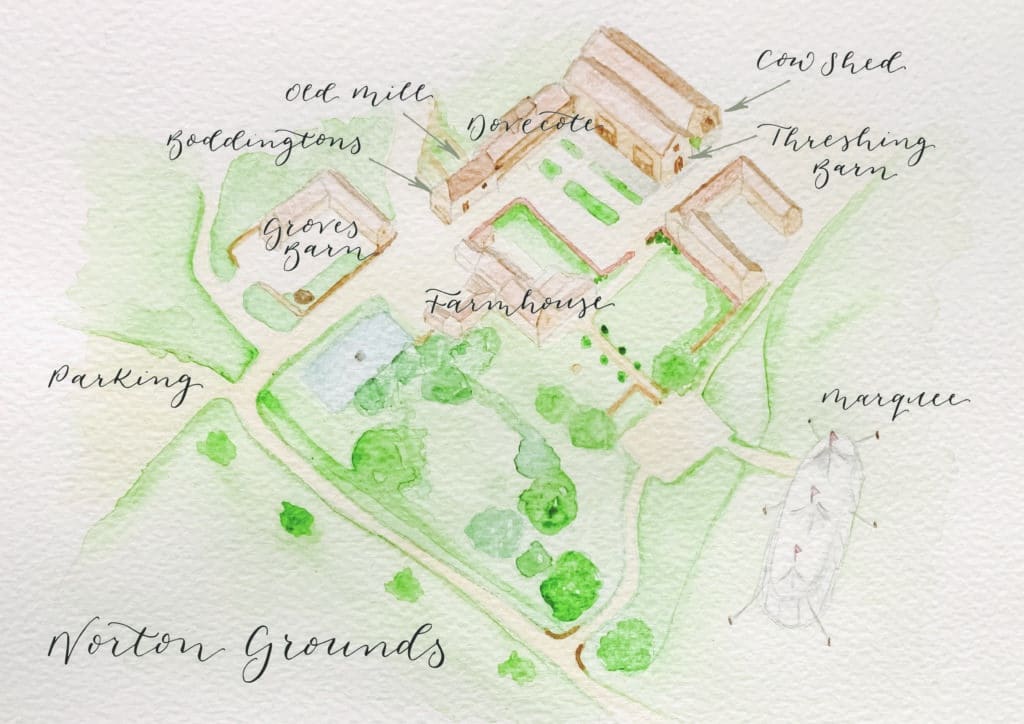 Cow Shed
Old Mill
Dovecote
Boddingtons
Threshing
Barn
Groves
Barn
Farmhouse
Parking
Marquee
Norton Grounds